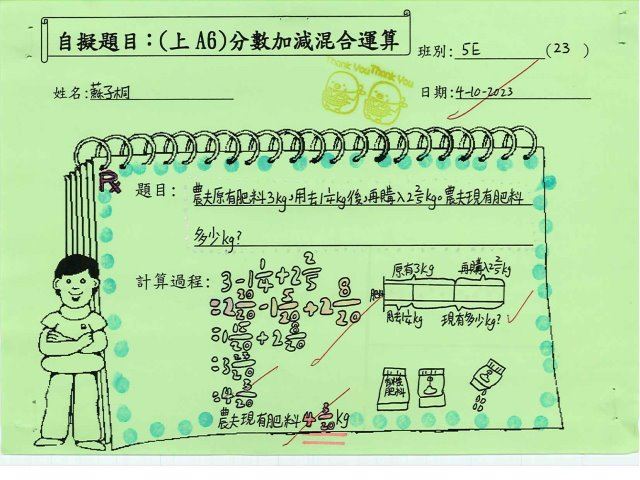 自擬題目：(上A6)分數加減混合運算
班別：5E (23)
Thank You Thank You
姓名：蘇子桐
日期：4-10-2023
題目：農夫原有肥料3kg，用去1¼kg後，再購入2⅖kg。農夫現有肥料
多少kg?
計算過程：3-1¼+2⅖
=2 20/20-1 5/20+2 8/20
=1 15/20+2 8/20
=3 23/20
=4 3/20
農夫現有肥料4 3/20kg
原有3kg 再購入2⅖kg
肥料
用去1¼kg 現有多少kg?
肥料